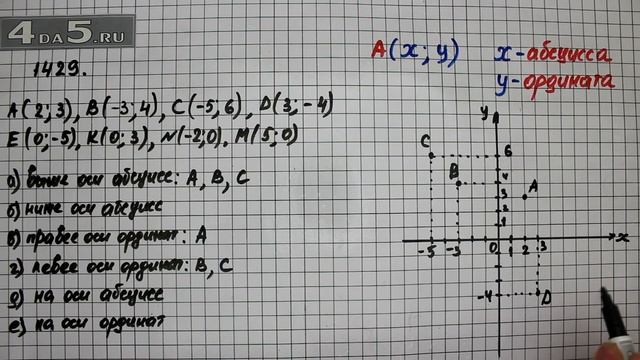 4DA5.RU
1429.
A(x; y) x-абсцисса
y-ордината
A(2; 3), B(-3; 4), C(-5; 6), D(3; -4)
E(0; -5), K(0; 3), N(-2; 0), M(5; 0)
а) выше оси абсцисс: A, B, C
б) ниже оси абсцисс
в) правее оси ординат: A
г) левее оси ординат: B, C
д) на оси абсцисс
е) на оси ординат
y
C
6
B
4
A
3
2
1
-5
-3
0
1
2
3
x
-4
D